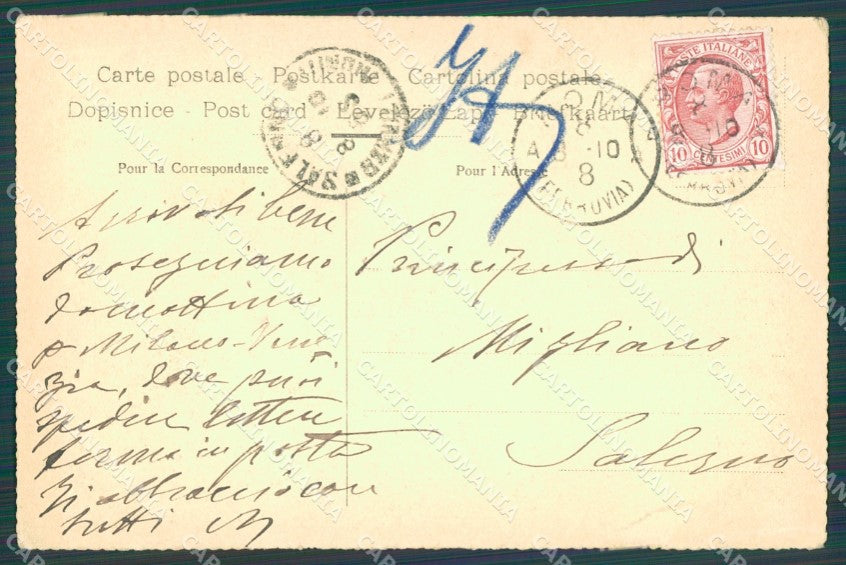 Carte postale Postkarte Cartolina postale
Dopisnice - Post card Levelező Lap - Briefkaart
Pour la Correspondance
Pour l'Adresse
Arrivati bene
Proseguiamo
domattina
Milano-Vene
zia, dove puoi
spedire lettere
ferma in posta
Ti abbraccio con
tutti
Principessa di
Migliano
Salerno
POSTE ITALIANE
10 CENTESIMI 10
ROMA
8 - 10
8
(FERROVIA)
ROMA
10
(FERROVIA)
SALERNO
CARTOLINOMANIA